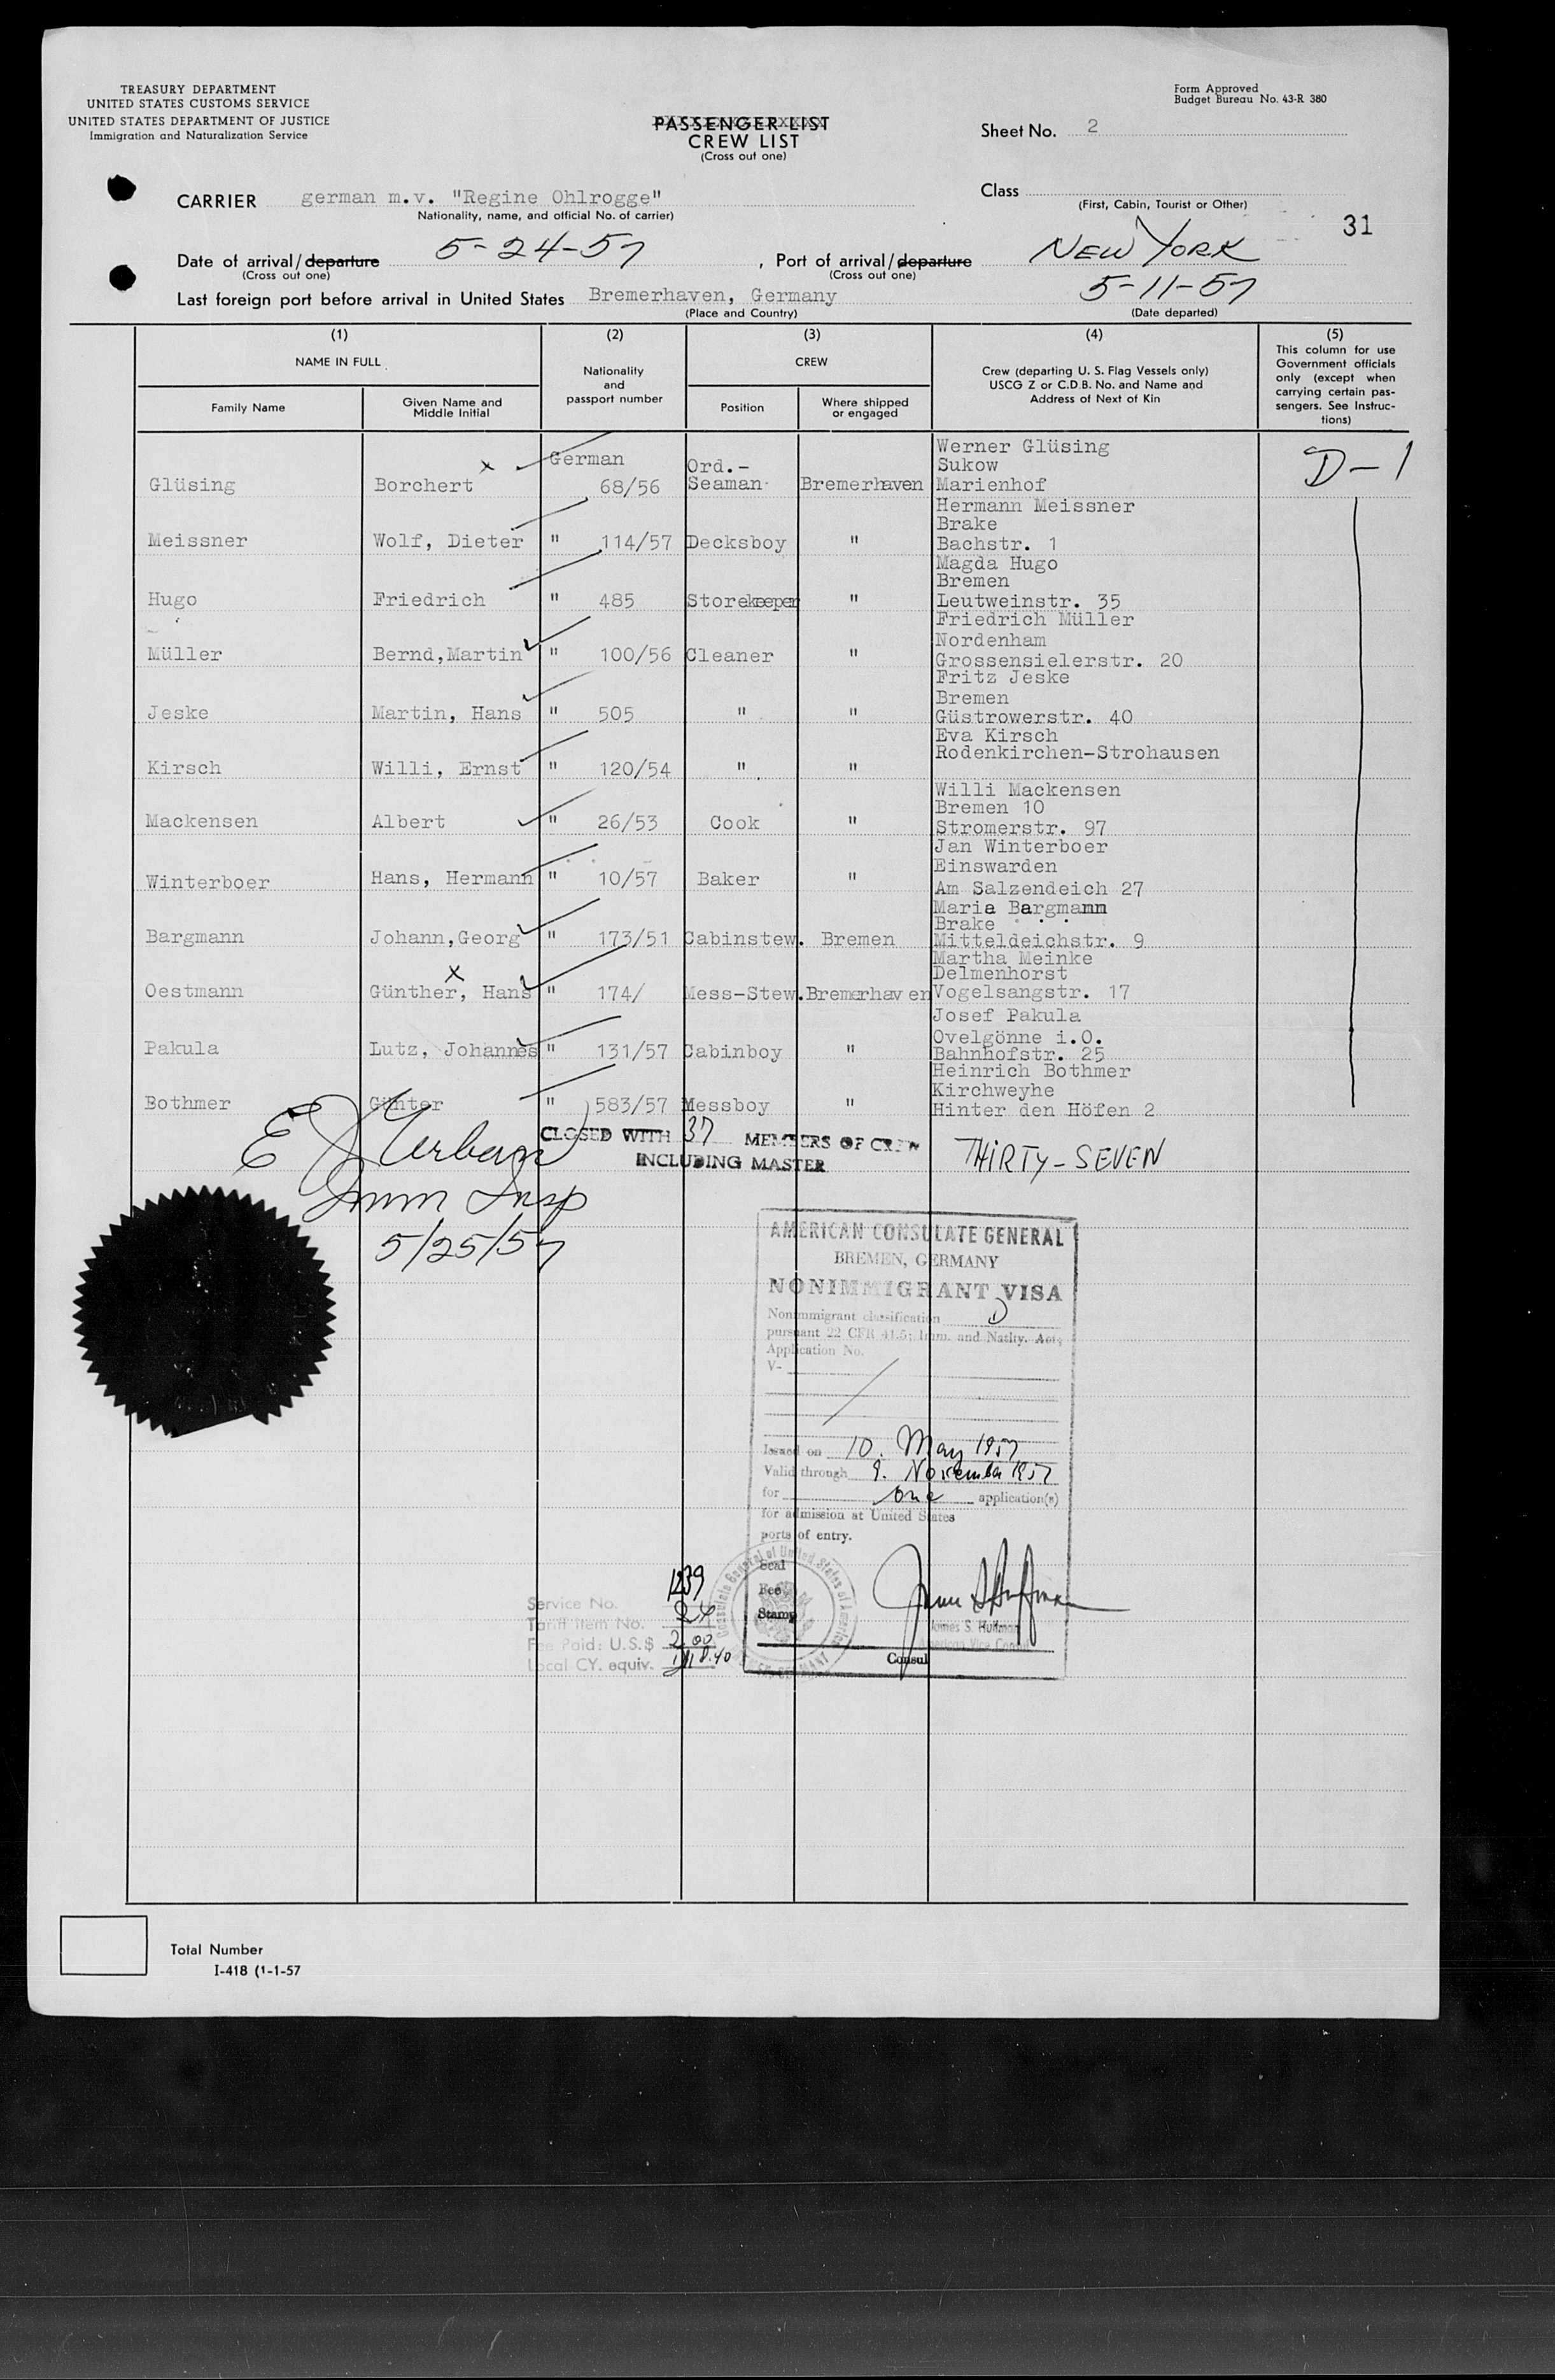 TREASURY DEPARTMENT
UNITED STATES CUSTOMS SERVICE
UNITED STATES DEPARTMENT OF JUSTICE
Immigration and Naturalization Service
Form Approved
Budget Bureau No. 43-R 380
PASSENGER LIST
CREW LIST
(Cross out one)
Sheet No. 2
CARRIER german m.v. "Regine Ohlrogge"
Nationality, name, and official No. of carrier)
Class
(First, Cabin, Tourist or Other)
31
Date of arrival/departure 5-24-57, Port of arrival/departure NEW YORK
(Cross out one) (Cross out one)
Last foreign port before arrival in United States Bremerhaven, Germany 5-11-57
(Place and Country) (Date departed)
(1) (2) (3) (4) (5)
NAME IN FULL
Family Name
Given Name and
Middle Initial
Nationality
and
passport number
CREW
Position
Where shipped
or engaged
Crew (departing U. S. Flag Vessels only)
USCG Z or C.D.B. No. and Name and
Address of Next of Kin
This column for use
Government officials
only (except when
carrying certain pas-
sengers. See Instruc-
tions)
Werner Glüsing
German Ord.- Sukow D-1
Glüsing Borchert x 68/56 Seaman Bremerhaven Marienhof
Hermann Meissner
Brake
Meissner Wolf, Dieter " 114/57 Decksboy " Bachstr. 1
Magda Hugo
Bremen
Hugo Friedrich " 485 Storekeeper " Leutweinstr. 35
Friedrich Müller
Nordenham
Müller Bernd,Martin " 100/56 Cleaner " Grossensielerstr. 20
Fritz Jeske
Bremen
Jeske Martin, Hans " 505 " " Güstrowerstr. 40
Eva Kirsch
Rodenkirchen-Strohausen
Kirsch Willi, Ernst " 120/54 " "
Willi Mackensen
Bremen 10
Mackensen Albert " 26/53 Cook " Stromerstr. 97
Jan Winterboer
Einswarden
Winterboer Hans, Hermann " 10/57 Baker " Am Salzendeich 27
Maria Bargmann
Brake
Bargmann Johann,Georg " 173/51 Cabinstew. Bremen Mitteldeichstr. 9
Martha Meinke
x Delmenhorst
Oestmann Günther, Hans " 174/ Mess-Stew. Bremerhaven Vogelsangstr. 17
Josef Pakula
Ovelgönne i.O.
Pakula Lutz, Johannes " 131/57 Cabinboy " Bahnhofstr. 25
Heinrich Bothmer
Kirchweyhe
Bothmer Günter " 583/57 Messboy " Hinter den Höfen 2
CLOSED WITH 37 MEMBERS OF CREW THIRTY-SEVEN
INCLUDING MASTER
E J Urban
Imm Insp
5/25/57
AMERICAN CONSULATE GENERAL
BREMEN, GERMANY
NONIMMIGRANT VISA
Nonimmigrant classification D
pursuant 22 CFR 41.5; Imm. and Natlty. Act;
Application No.
V-
Issued on 10. May 1957
Valid through 9. November 1957
for one application(s)
for admission at United States
ports of entry.
Seal
Fee
Stamp
James S. Huffman
American Vice Consul
Consul
Service No. 1239
Tariff Item No. 24
Fee Paid: U.S.$ 2.00
Local CY. equiv. 8.40
Total Number
I-418 (1-1-57